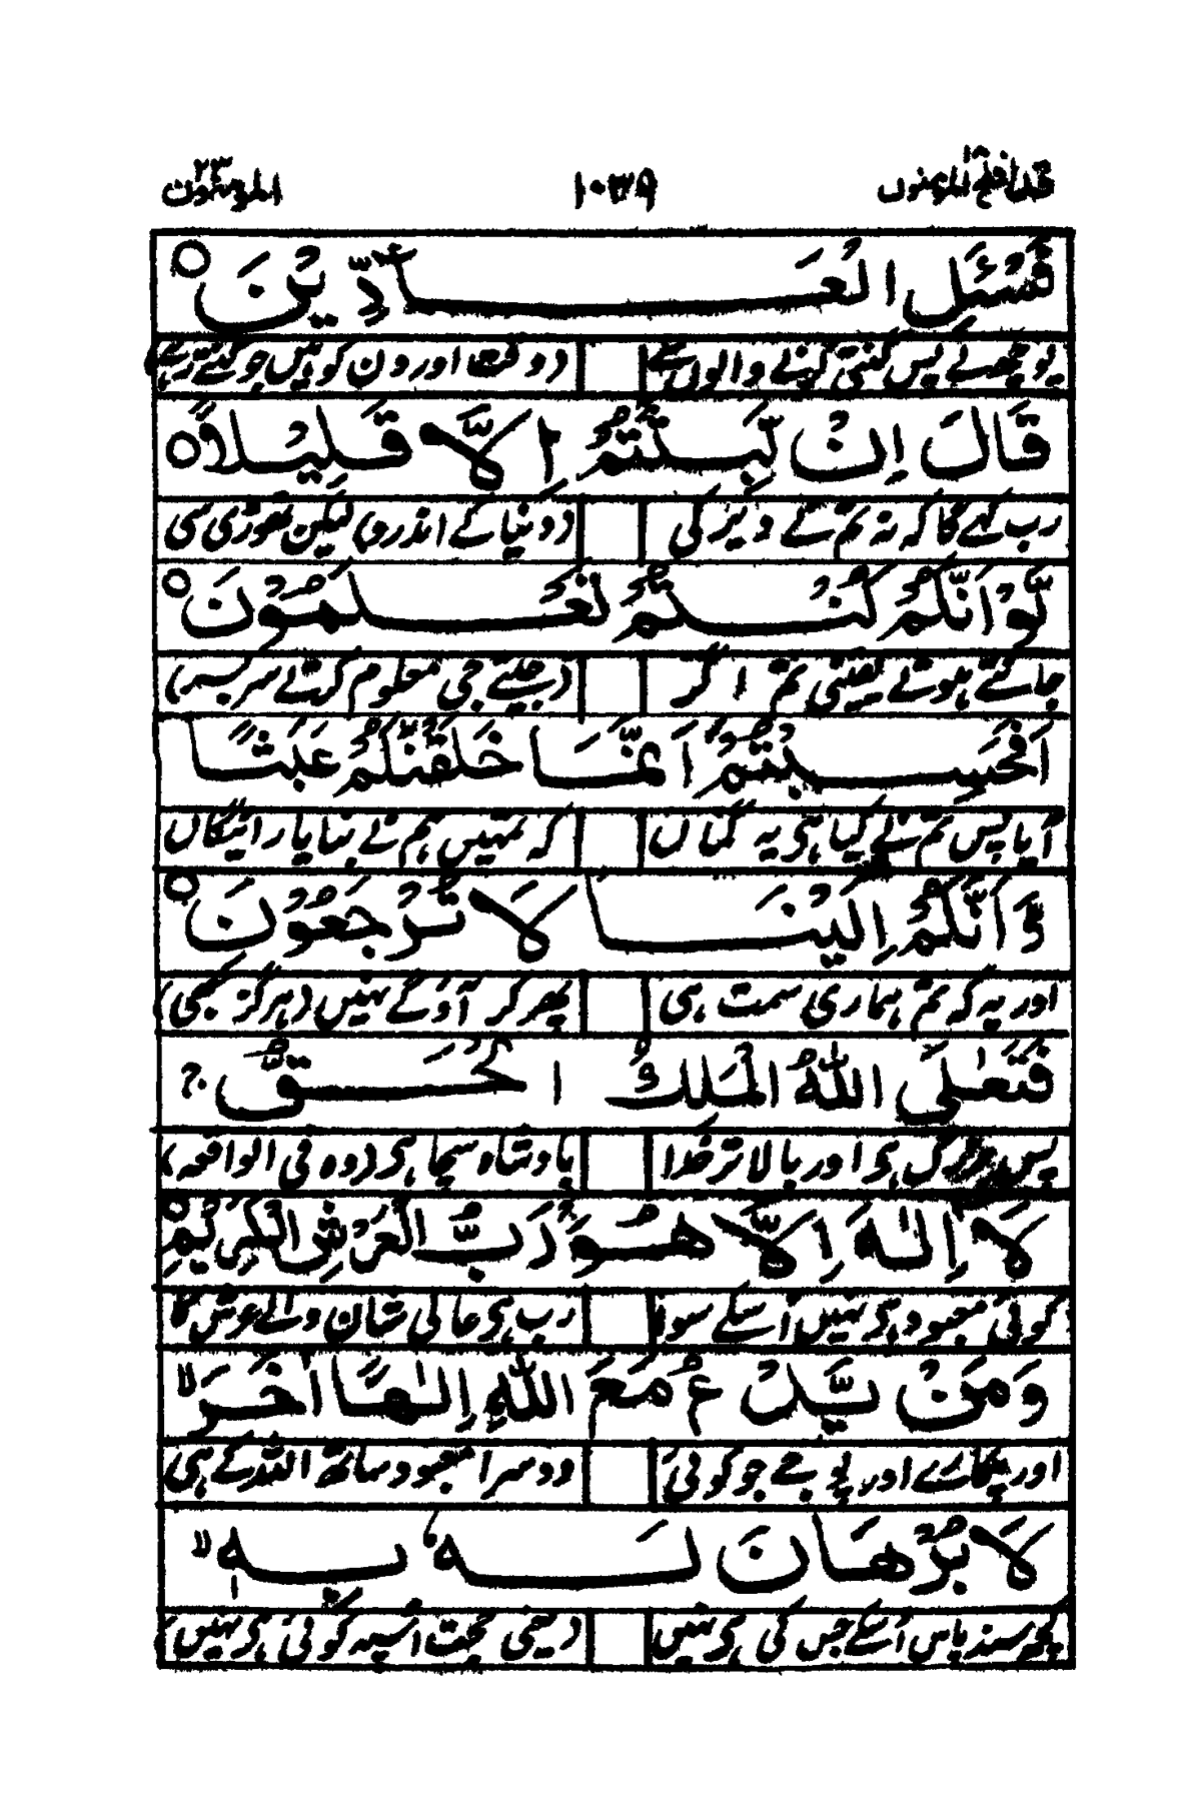 قد افلح المومنون ۱۰۳۹ المومنون ۲۳
فَسْئَلِ الْعَادِّيْنَ ○
پوچھ لے پس گنتی گننے والوں سے (دوقت اور دن کو ہیں جو گنتے رہے)
قَالَ اِنْ لَّبِثْتُمْ اِلَّا قَلِيْلًا ○
رب کہے گا کہ نہ تم نے دیر کی (دنیا کے اندر) لیکن تھوڑی سی
لَّوْ اَنَّكُمْ كُنْتُمْ تَعْلَمُوْنَ ○
جانتے ہوتے یقینی تم اگر
اَفَحَسِبْتُمْ اَنَّمَا خَلَقْنٰكُمْ عَبَثًا
آیا پس تم نے کیا ہی یہ گماں کہ تمہیں ہم نے بنایا رائیگاں
وَّ اَنَّكُمْ اِلَيْنَا لَا تُرْجَعُوْنَ ○
اور یہ کہ تم ہماری سمت ہی پھر کر آؤ گے نہیں (ہرگز کبھی)
فَتَعٰلَى اللّٰهُ الْمَلِكُ الْحَقُّ ج
پس بزرگ ہی اور بالا تر خدا بادشاہ سچا ہی (وہ فی الواقعہ)
لَا اِلٰهَ اِلَّا هُوَ رَبُّ الْعَرْشِ الْكَرِيْمِ ○
کوئی معبود ہی نہیں اُسکے سوا رب ہی عالی شان والے عرش کا
وَمَنْ يَّدْعُ مَعَ اللّٰهِ اِلٰهًا اٰخَرَ لا
اور پکارے اور پوجے جو کوئی دوسرا معبود ساتھ اللہ کے ہی
لَا بُرْهَانَ لَهٗ بِهٖ لا
کچھ سند پاس اُسکے جس کی ہی نہیں (یعنی حجت اُسپہ کوئی ہی نہیں)